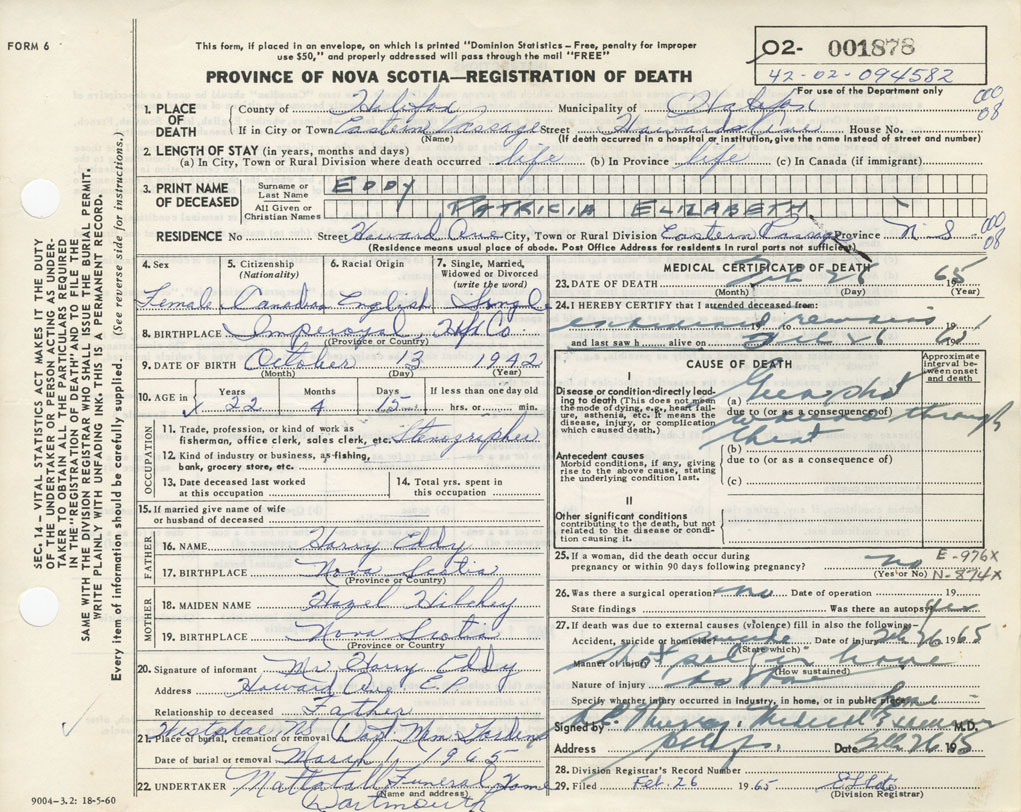 FORM 6
This form, if placed in an envelope, on which is printed "Dominion Statistics – Free, penalty for improper
use $50," and properly addressed will pass through the mail "FREE"
PROVINCE OF NOVA SCOTIA—REGISTRATION OF DEATH
O2- 001878
42-02-094582
For use of the Department only
000
08
1. PLACE OF DEATH
County of Halifax Municipality of Halifax
If in City or Town Eastern Passage Street Howards Ave House No.
(Name) (If death occurred in a hospital or institution, give the name instead of street and number)
2. LENGTH OF STAY (in years, months and days)
(a) In City, Town or Rural Division where death occurred life (b) In Province life (c) In Canada (if immigrant)
3. PRINT NAME OF DECEASED
Surname or Last Name EDDY
All Given or Christian Names PATRICIA ELIZABETH
RESIDENCE No Street Howard Ave City, Town or Rural Division Eastern Passage Province N-S
000
08
(Residence means usual place of abode. Post Office Address for residents in rural parts not sufficient)
4. Sex
Female
5. Citizenship (Nationality)
Canadian
6. Racial Origin
English
7. Single, Married, Widowed or Divorced (write the word)
Single
8. BIRTHPLACE Imperoyal, Hfx Co
(Province or Country)
9. DATE OF BIRTH October 13 1942
(Month) (Day) (Year)
10. AGE in Years 22 Months 4 Days 15 If less than one day old
hrs. or min.
OCCUPATION
11. Trade, profession, or kind of work as
fisherman, office clerk, sales clerk, etc. Stenographer
12. Kind of industry or business, as fishing,
bank, grocery store, etc.
13. Date deceased last worked
at this occupation
14. Total yrs. spent in
this occupation
15. If married give name of wife
or husband of deceased
FATHER
16. NAME Harry Eddy
17. BIRTHPLACE Nova Scotia
(Province or Country)
MOTHER
18. MAIDEN NAME Hazel Hilchey
19. BIRTHPLACE Nova Scotia
(Province or Country)
20. Signature of informant Mr Harry Eddy
Address Howard Ave E.P.
Relationship to deceased Father
21. Place of burial, cremation or removal Westphal NS Dart Mem Gardens
Date of burial or removal March 1 1965
22. UNDERTAKER Mattatall Funeral Home
(Name and address)
Dartmouth
9004–3.2: 18-5-60
MEDICAL CERTIFICATE OF DEATH
23. DATE OF DEATH Feb 26 1965
(Month) (Day) (Year)
24. I HEREBY CERTIFY that I attended deceased from:
examined remains 19 to 19
and last saw h alive on Feb 26
CAUSE OF DEATH
Approximate interval between onset and death
I
Disease or condition directly leading to death (This does not mean the mode of dying, e.g., heart failure, asthenia, etc. It means the disease, injury, or complication which caused death.)
(a) Gunshot
due to (or as a consequence of)
wound through
chest
Antecedent causes
Morbid conditions, if any, giving rise to the above cause, stating the underlying condition last.
(b)
due to (or as a consequence of)
(c)
II
Other significant conditions
contributing to the death, but not related to the disease or condition causing it.
25. If a woman, did the death occur during
pregnancy or within 90 days following pregnancy? no
(Yes or No)
E-976X
N-874X
26. Was there a surgical operation? no Date of operation 19
State findings Was there an autopsy? yes
27. If death was due to external causes (violence) fill in also the following–
Accident, suicide or homicide? suicide Date of injury Feb 26 1965
(State which)
Manner of injury Shot self in home
(How sustained)
Nature of injury as above
Specify whether injury occurred in industry, in home, or in public place home
Signed by Murray, Medical Examiner M.D.
Address Date Feb 26 1965
28. Division Registrar's Record Number
29. Filed Feb. 26 1965
(Division Registrar)
SEC. 14 – VITAL STATISTICS ACT MAKES IT THE DUTY
OF THE UNDERTAKER OR PERSON ACTING AS UNDER-
TAKER TO OBTAIN ALL THE PARTICULARS REQUIRED
IN THE "REGISTRATION OF DEATH" AND TO FILE THE
SAME WITH THE DIVISION REGISTRAR WHO SHALL ISSUE THE BURIAL PERMIT.
WRITE PLAINLY WITH UNFADING INK. THIS IS A PERMANENT RECORD.
Every item of information should be carefully supplied. (See reverse side for instructions.)